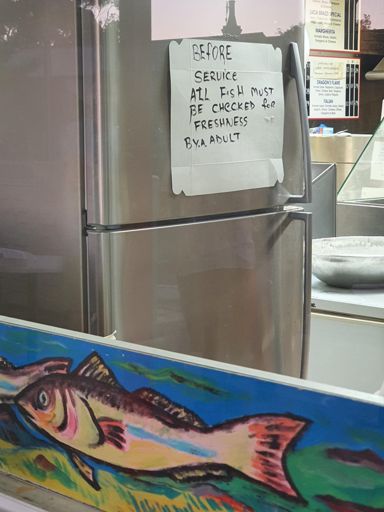 BEFORE
SERVICE
ALL FISH MUST
BE CHECKED for
FRESHNESS
BY.A. ADULT
MARGHERITA
DRAGON'S FLAME
ITALIAN